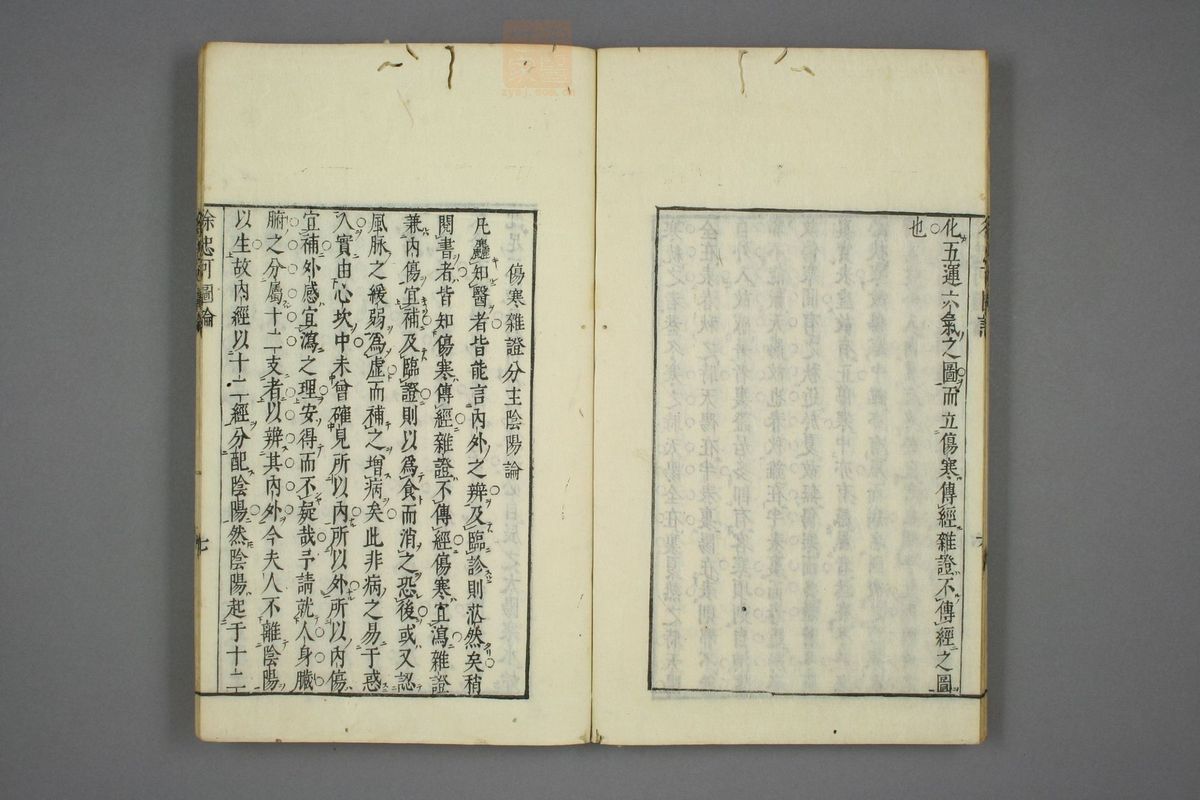 化五運六氣之圖而立傷寒傳經雜證不傳經之圖
也
傷寒雜證分主陰陽論
凡麤知醫者皆能言內外之辨及臨診則茫然矣稍
閱書者皆知傷寒傳經雜證不傳經傷寒宜瀉雜證
兼內傷宜補及臨證則以為食而消之恐後或又認
風脉之緩弱為虛而補之增病矣此非病之易于惑
人實由心坎中未曾確見所以內所以外所以內傷
宜補外感宜瀉之理安得而不疑哉予請就人身臟
腑之分屬十二支者以辨其內外今夫人不離陰陽
以生故內經以十二經分配陰陽然陰陽起于十二
徐忠可圖論
七
zysj.com.cn